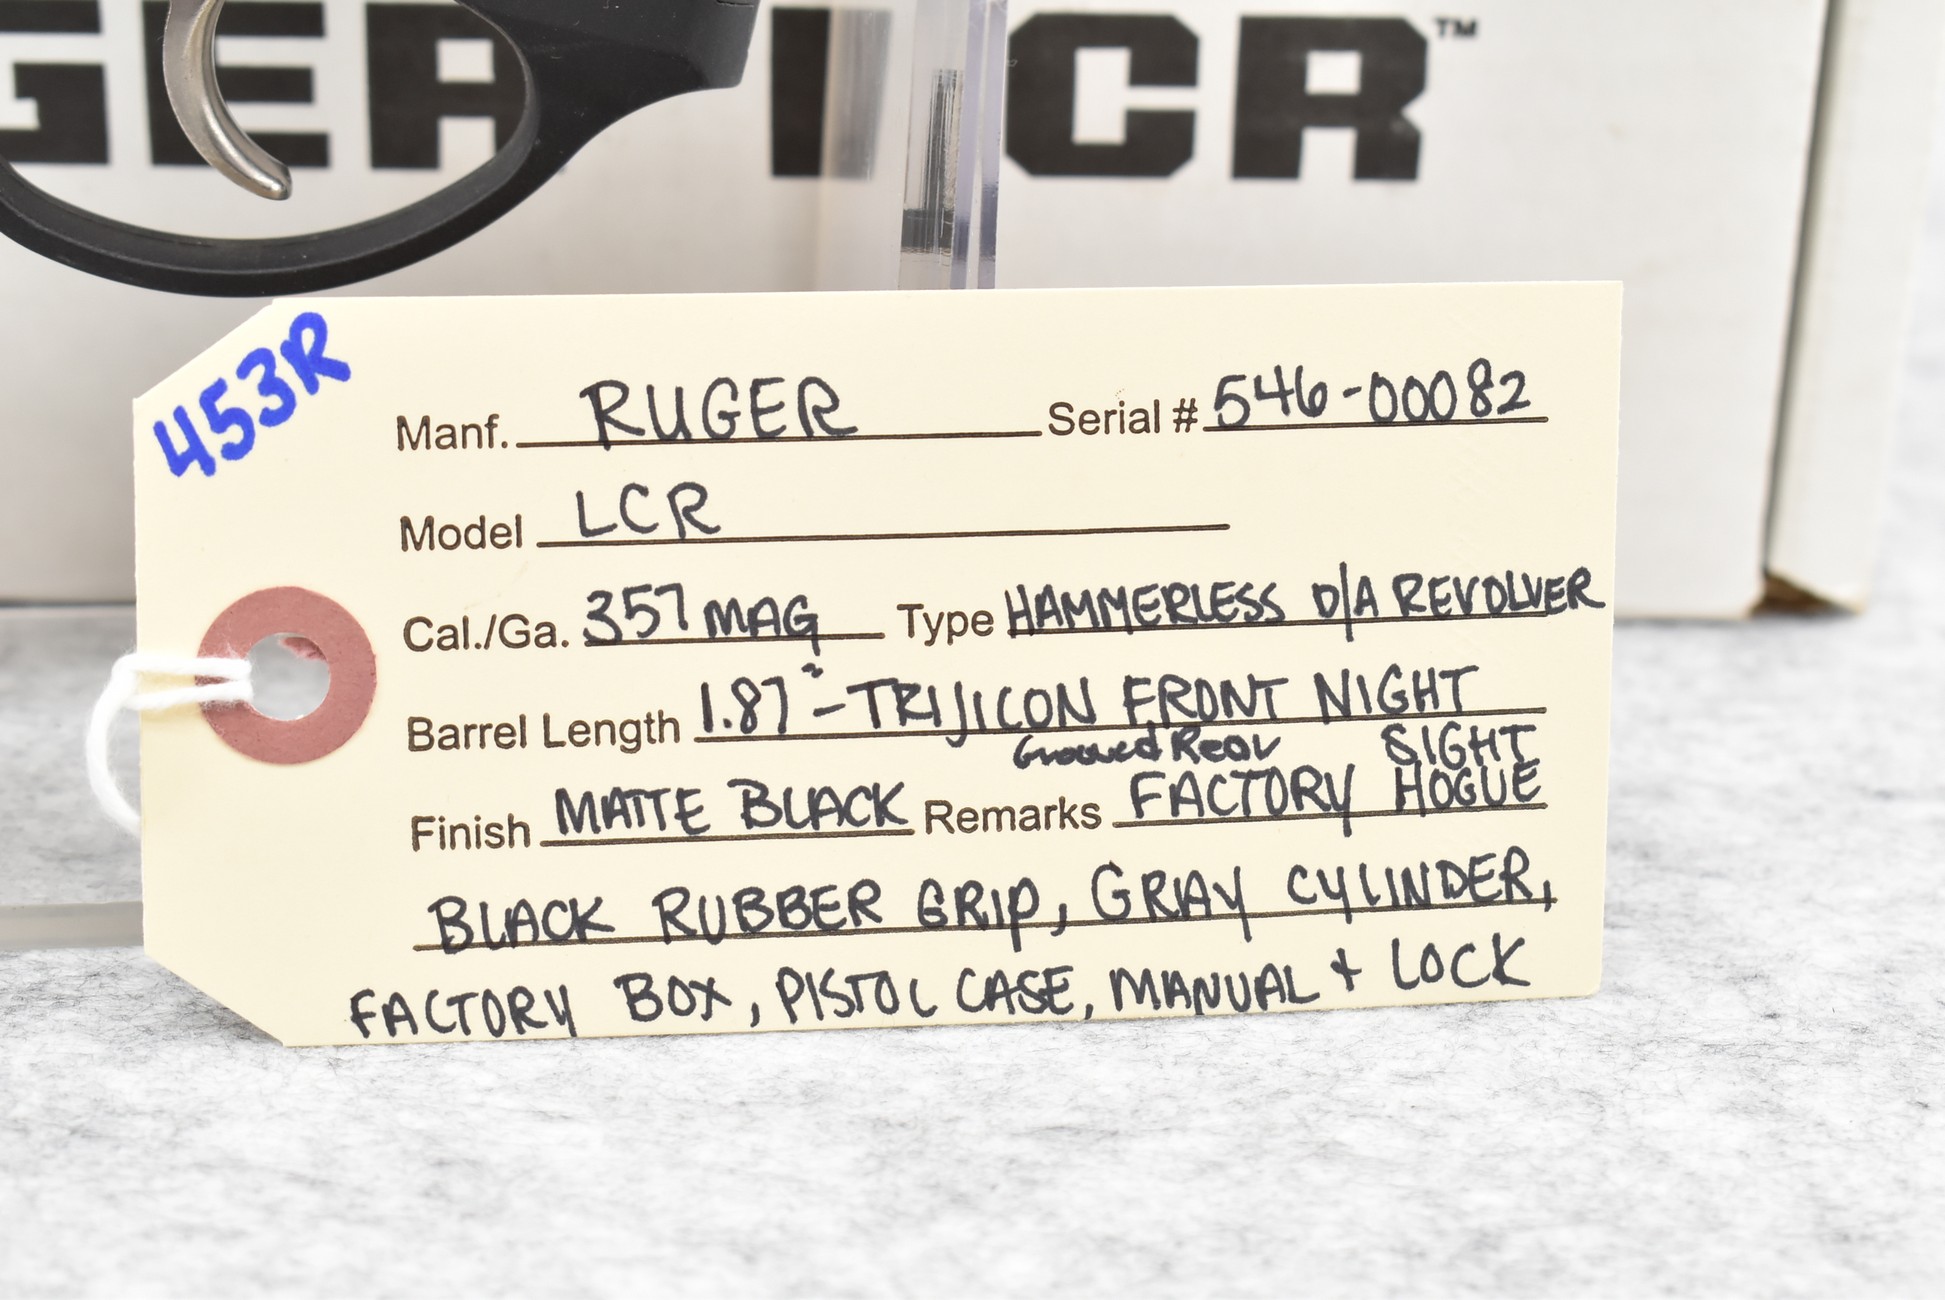 GER LCR™
453R
Manf. RUGER Serial # 546-00082
Model LCR
Cal./Ga. 357 MAG Type HAMMERLESS D/A REVOLVER
Barrel Length 1.87" - TRIJICON FRONT NIGHT
Grooved Rear SIGHT
Finish MATTE BLACK Remarks FACTORY HOGUE
BLACK RUBBER GRIP, GRAY CYLINDER,
FACTORY BOX, PISTOL CASE, MANUAL + LOCK